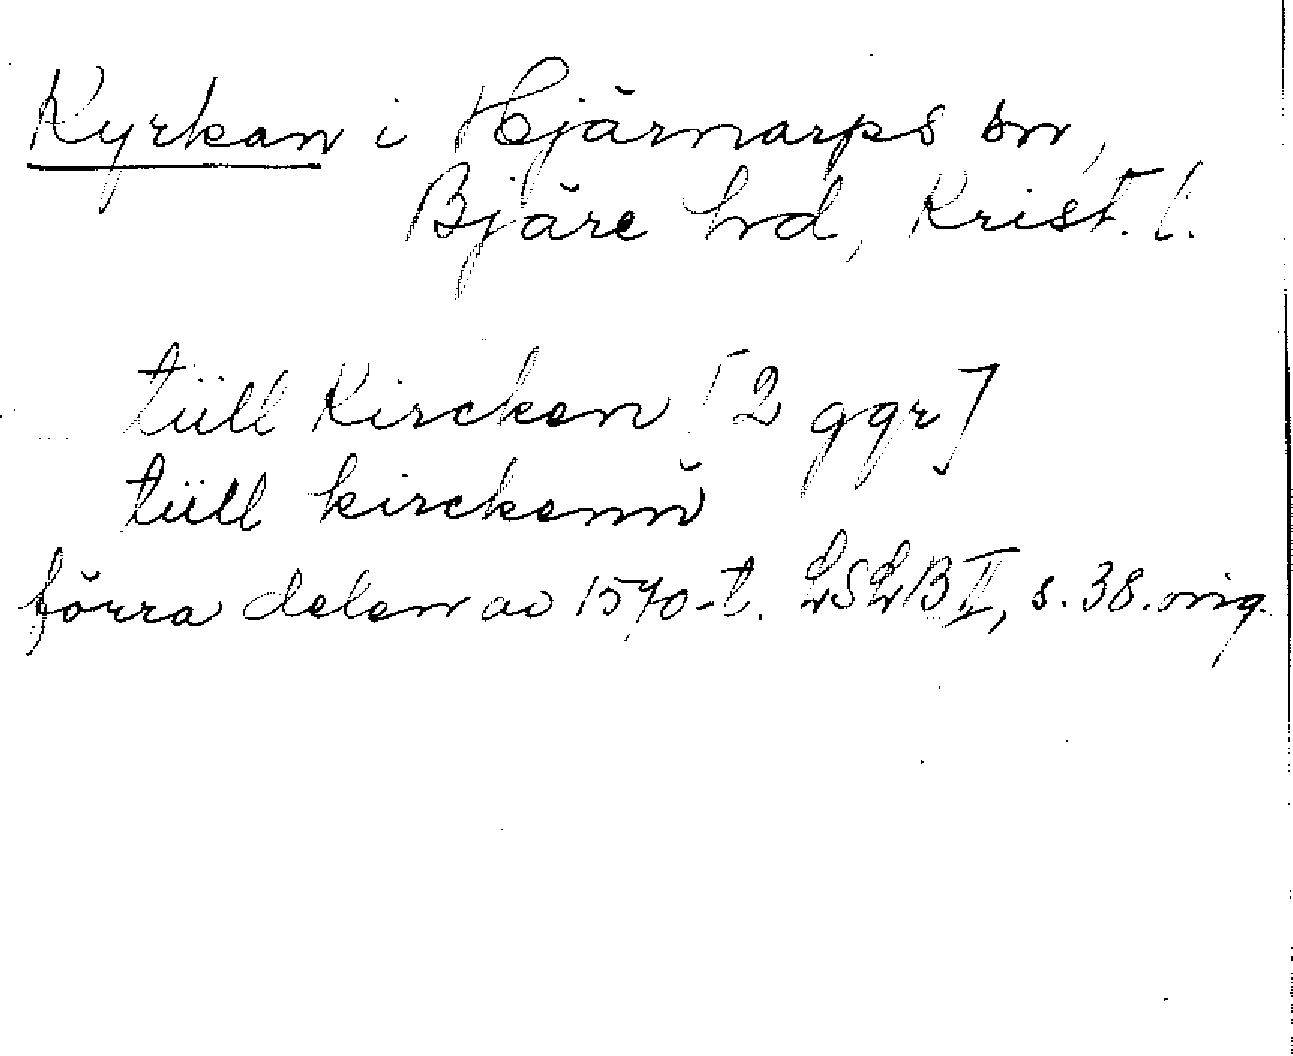 Kyrkan i Hjärnarps sn,
Bjäre hd, Krist. l.
tüll Kircken [2 ggr]
tüll kirckenn
förra delen av 1570-t. LSLB II, s. 38. orig.